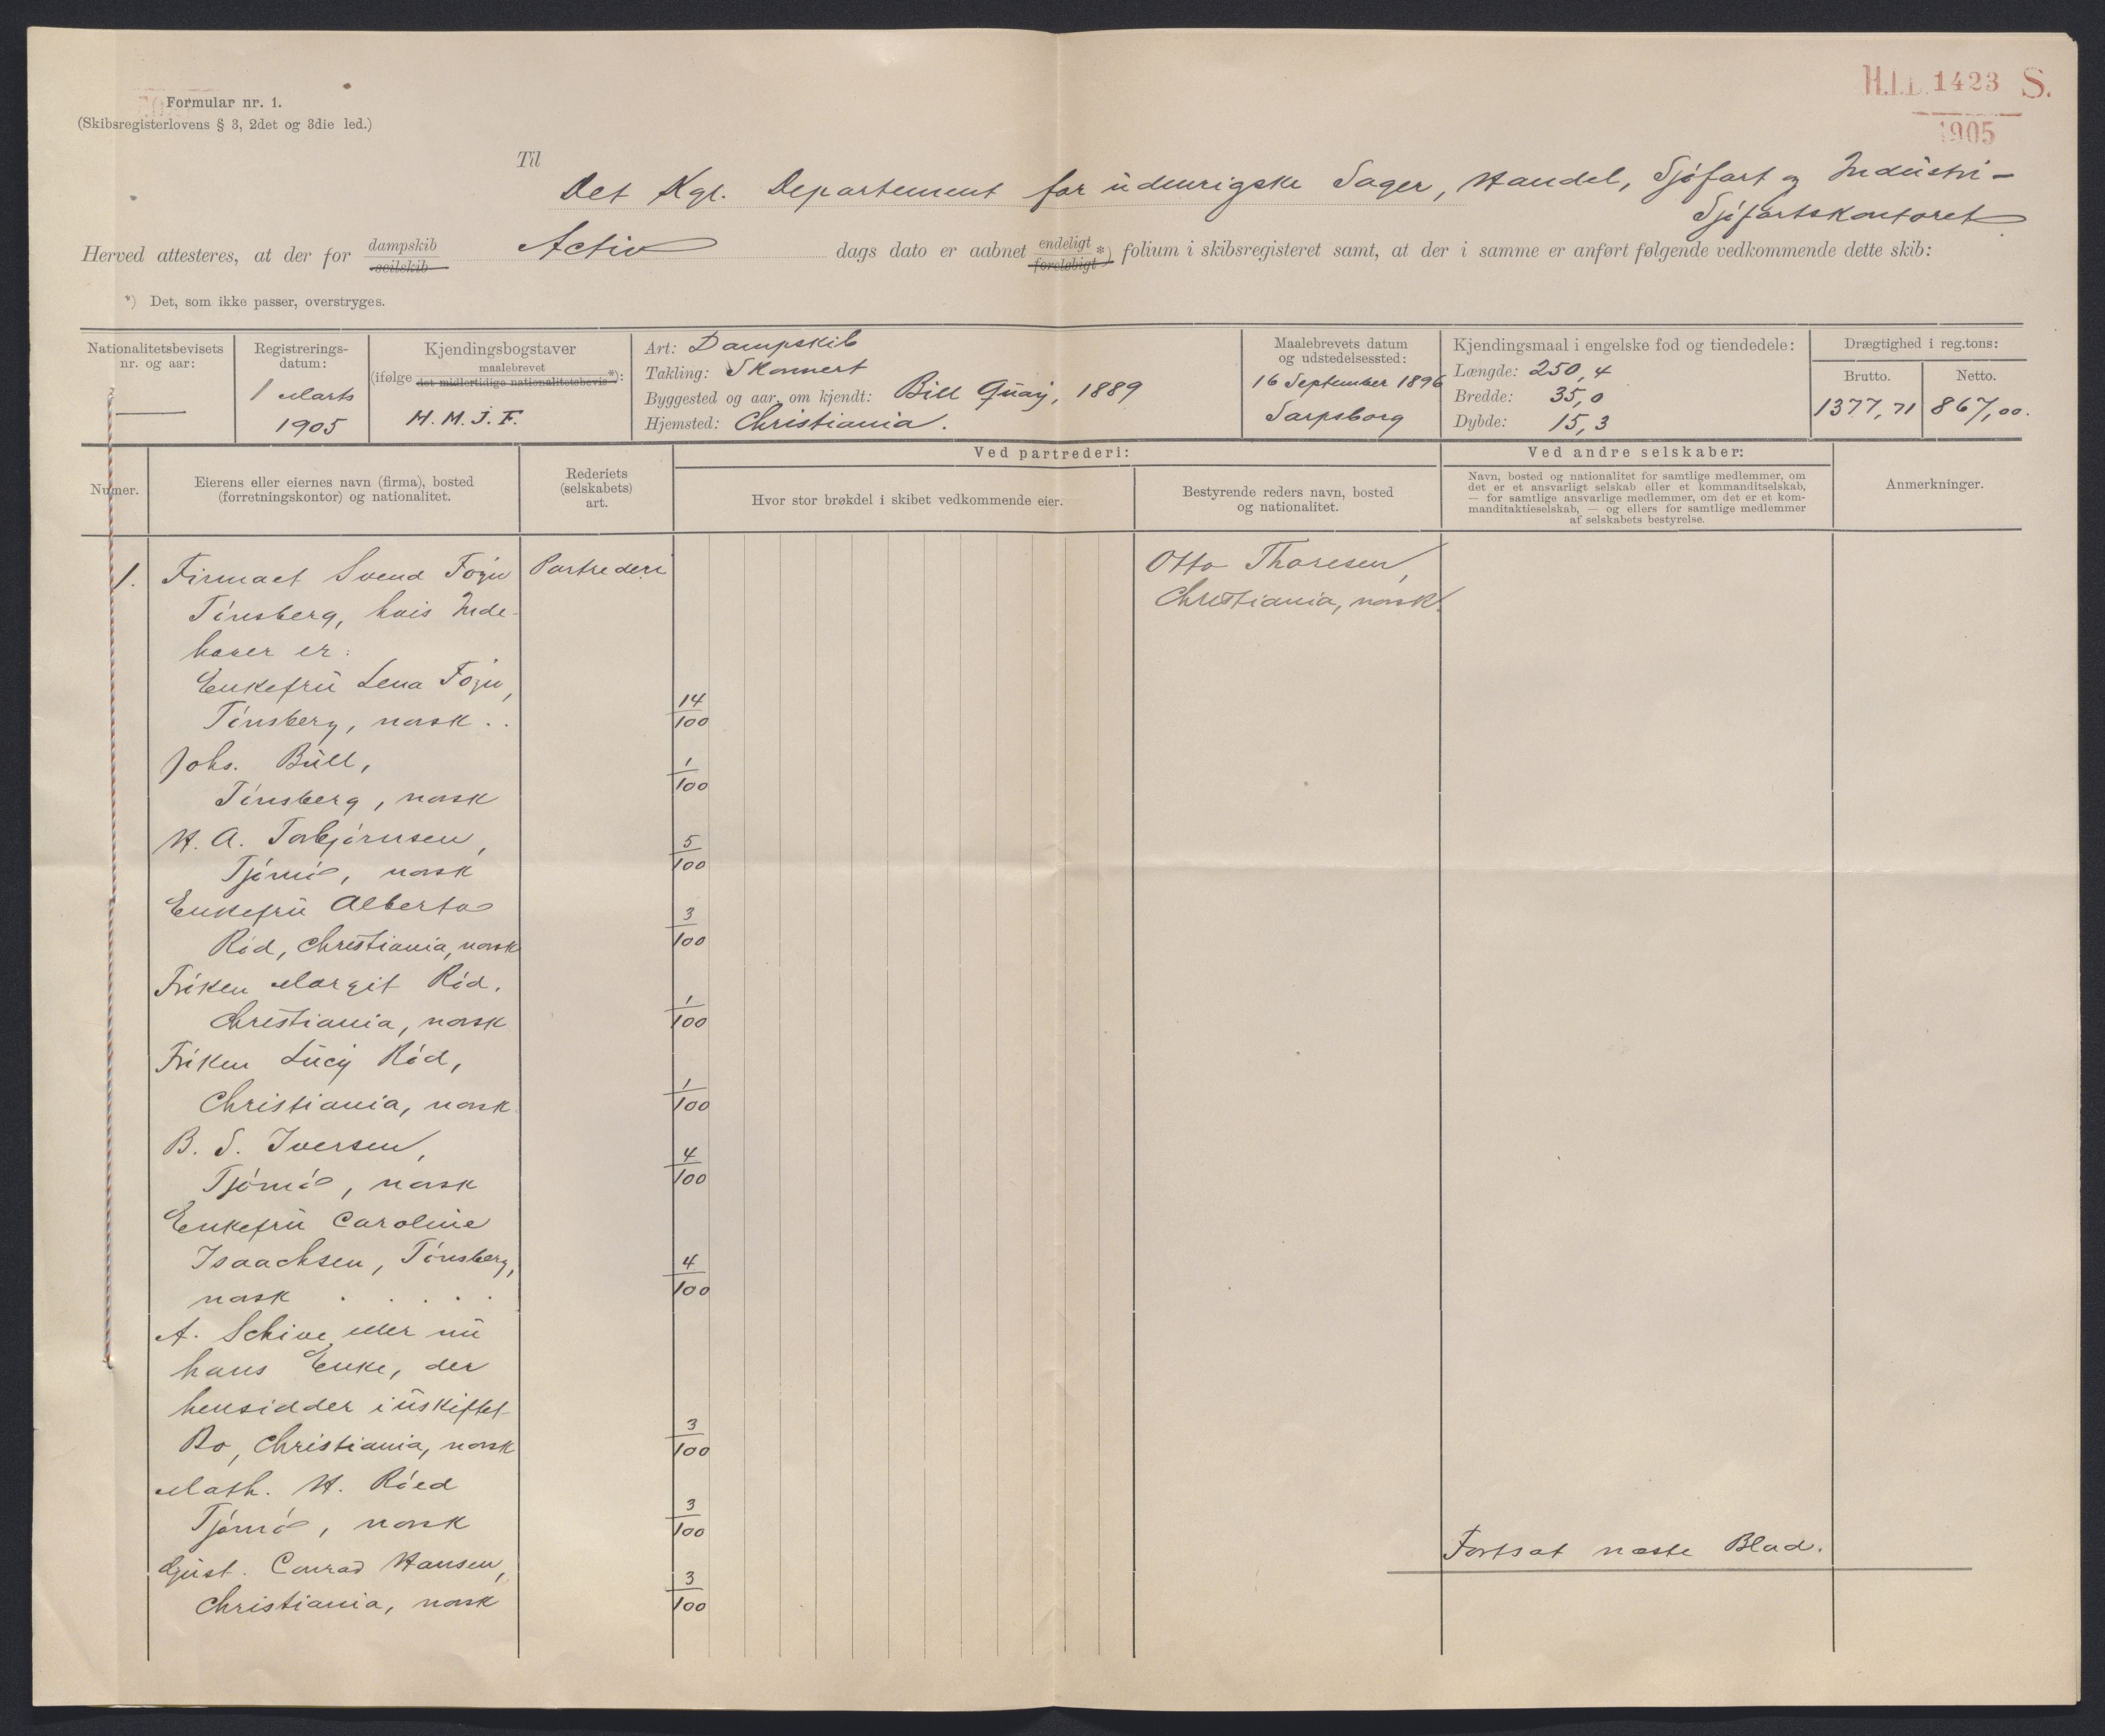 H.I.D. 1423 S.
1905
Formular nr. 1.
(Skibsregisterlovens § 3, 2det og 3die led.)
Til
Det Kgl. Departement for udenrigske Sager, Handel, Sjøfart og Industri –
Sjøfartskontoret
Herved attesteres, at der for dampskib seilskib Activ dags dato er aabnet endeligt foreløbigt *) folium i skibsregisteret samt, at der i samme er anført følgende vedkommende dette skib:
*) Det, som ikke passer, overstryges.
Nationalitetsbevisets
nr. og aar:
Registrerings-
datum:
1 Marts
1905
Kjendingsbogstaver
(ifølge maalebrevet det midlertidige nationalitetsbevis *):
H. M. J. F.
Art: Dampskib
Takling: Skonnert
Byggested og aar, om kjendt: Bill Quay, 1889
Hjemsted: Christiania.
Maalebrevets datum
og udstedelsessted:
16 September 1896
Sarpsborg
Kjendingsmaal i engelske fod og tiendedele:
Længde: 250,4
Bredde: 35,0
Dybde: 15,3
Drægtighed i reg.tons:
Brutto.
1377,71
Netto.
867,00.
Numer.
Eierens eller eiernes navn (firma), bosted
(forretningskontor) og nationalitet.
Rederiets
(selskabets)
art.
Ved partrederi:
Hvor stor brøkdel i skibet vedkommende eier.
Bestyrende reders navn, bosted
og nationalitet.
Ved andre selskaber:
Navn, bosted og nationalitet for samtlige medlemmer, om
det er et ansvarligt selskab eller et kommanditselskab,
— for samtlige ansvarlige medlemmer, om det er et kom-
manditaktieselskab, — og ellers for samtlige medlemmer
af selskabets bestyrelse.
Anmerkninger.
1. Firmaet Svend Foyn Partrederi
Otto Thoresen,
Christiania, norsk.
Tønsberg, hvis Inde-
haver er:
Enkefru Lena Foyn,
Tønsberg, norsk . . 14/100
Johs. Bull,
Tønsberg, norsk 1/100
H. A. Torbjørnsen,
Tjømø, norsk 5/100
Enkefru Alberta
Rød, Christiania, norsk 3/100
Frøken Margit Rød.
Christiania, norsk 1/100
Frøken Lucy Rød,
Christiania, norsk 1/100
B. S. Iversen,
Tjømø, norsk 4/100
Enkefru Caroline
Isaachsen, Tønsberg,
norsk . . . . . 4/100
A. Schive eller nu
hans Enke, der
hensidder i uskiftet
Bo, Christiania, norsk 3/100
Math. H. Røed
Tjømø, norsk 3/100
Gust. Conrad Hansen,
Christiania, norsk 3/100
Fortsat næste Blad.